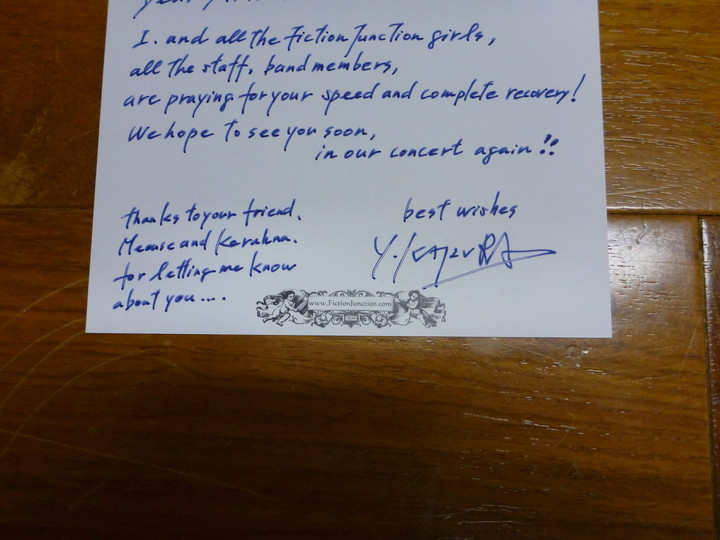 I. and all the FictionJunction girls,
all the staff, band members,
are praying for your speed and complete recovery!
We hope to see you soon,
in our concert again!!
thanks to your friend,
and
for letting me know
about you....
best wishes
Y. KAJURA
www.FictionJunction.com